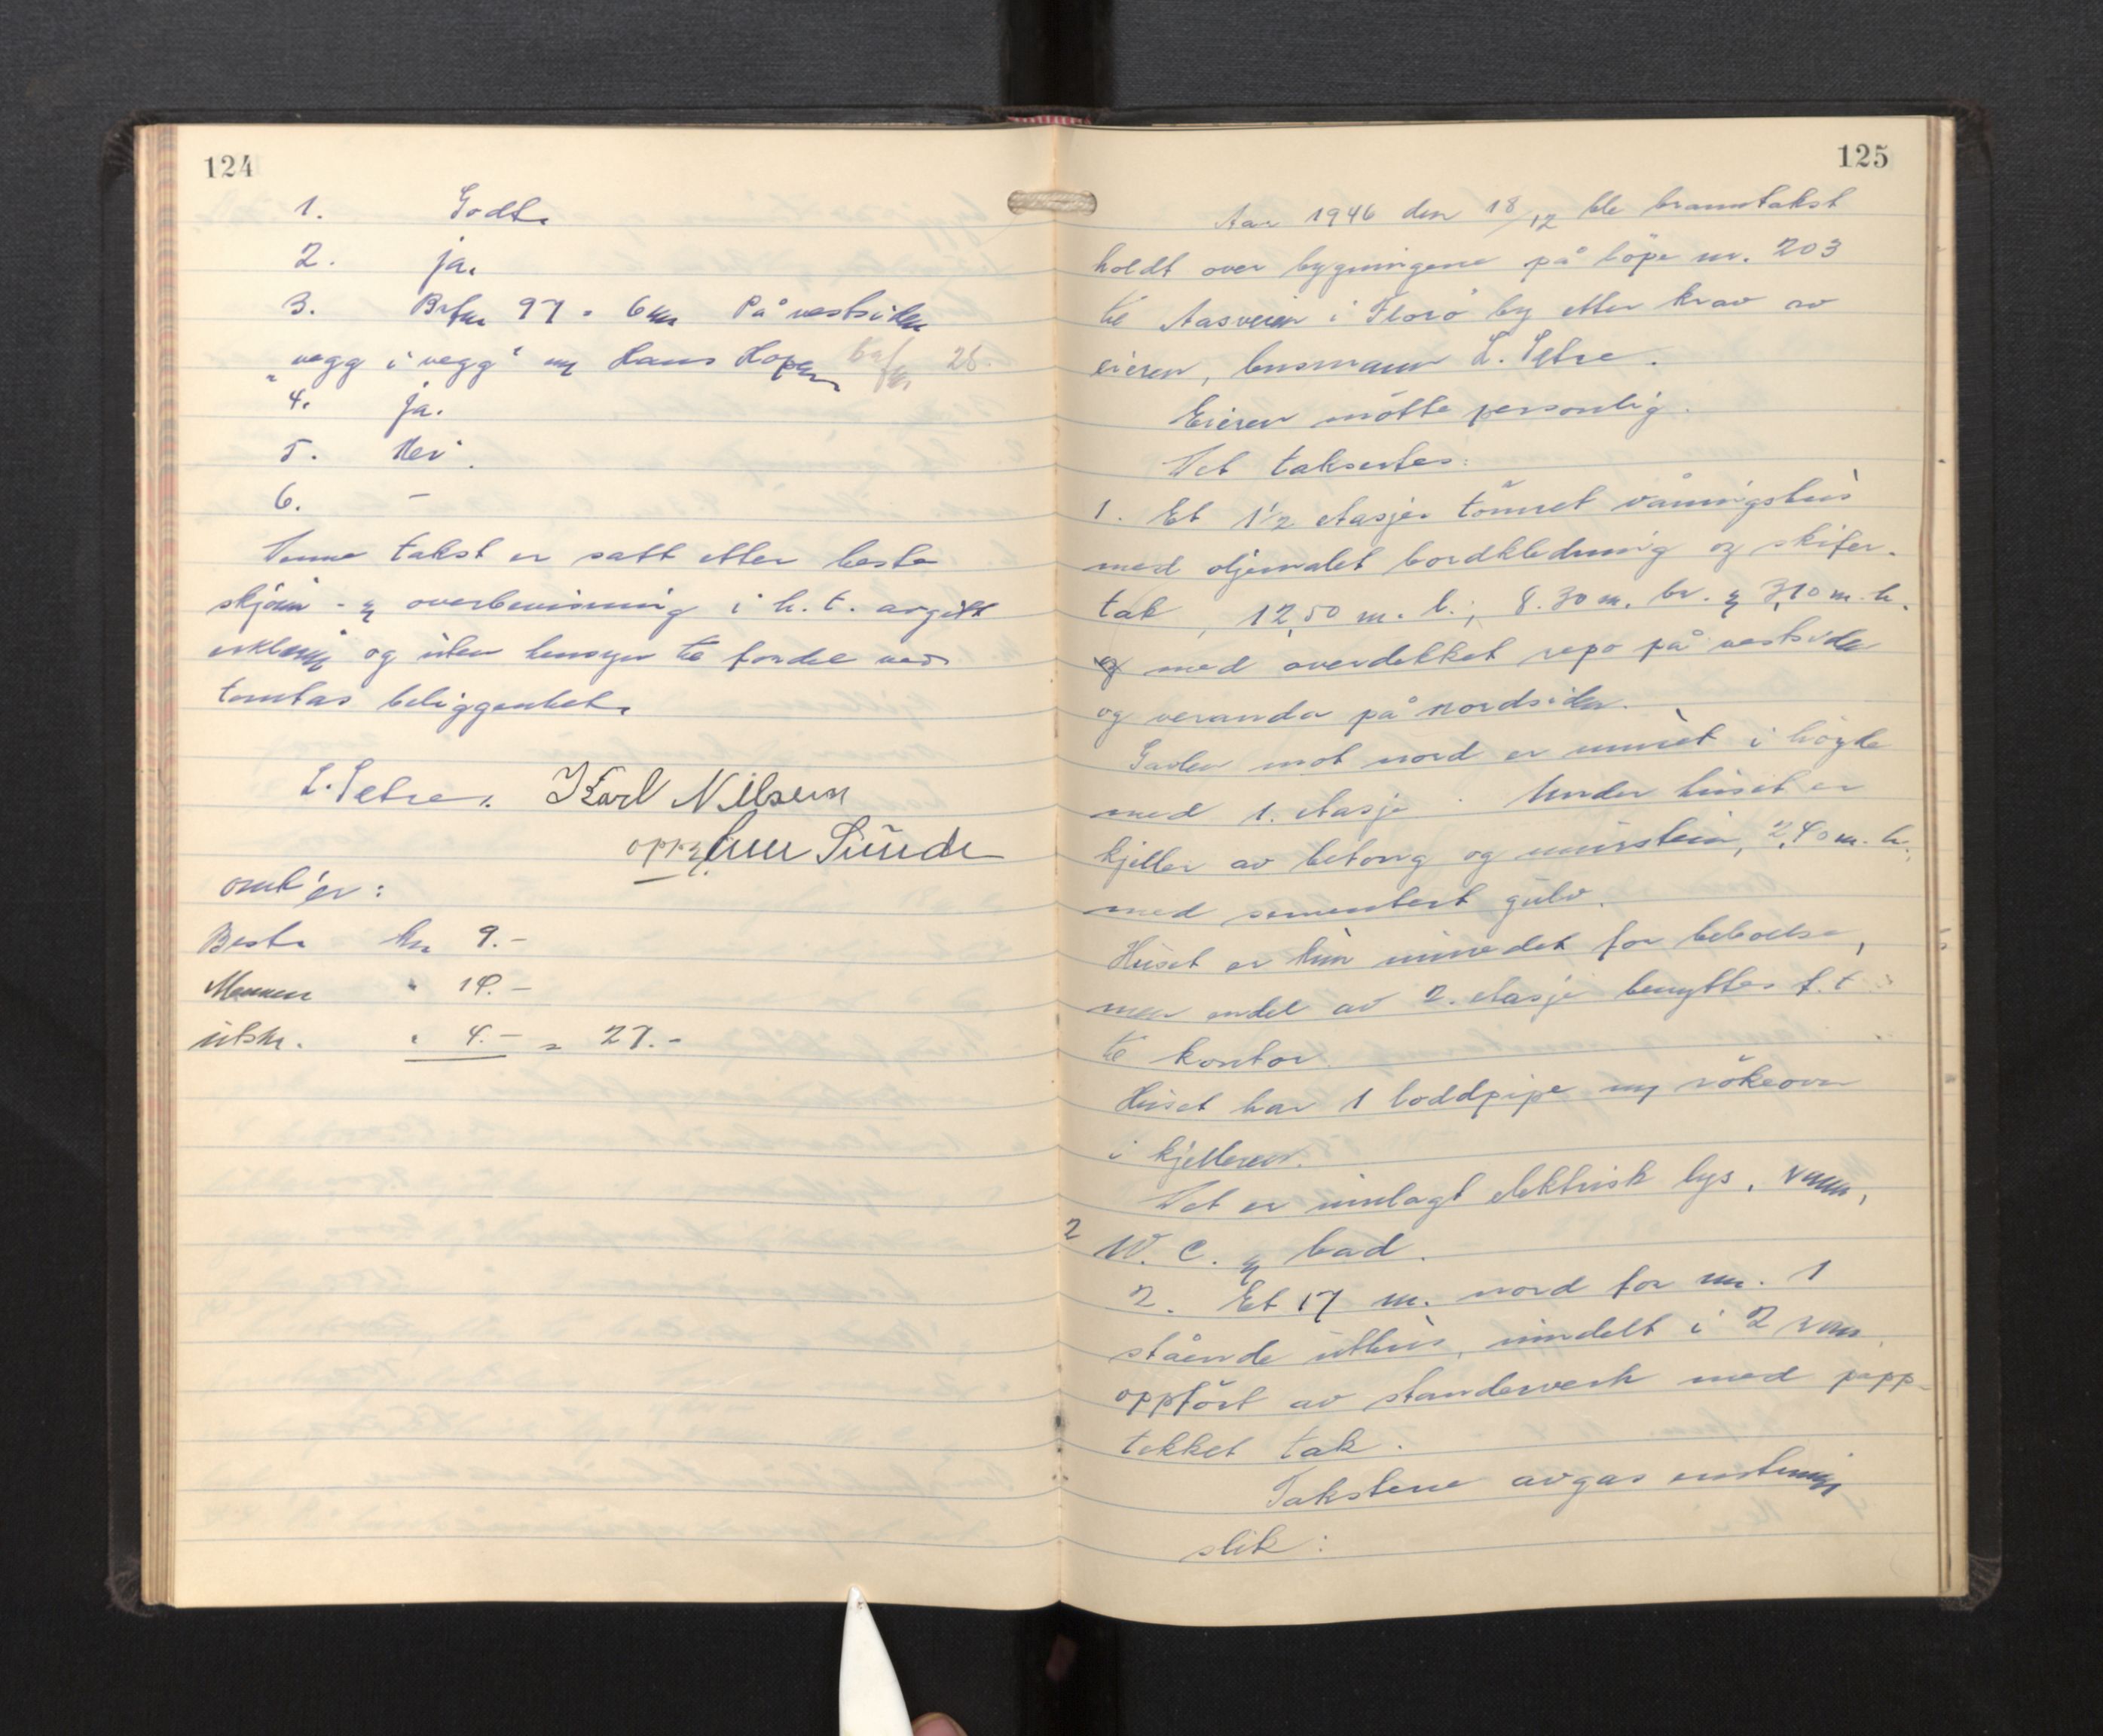 124
1. Godt.
2. ja.
3. Brfnr 97 = 6 m På vestsiden
"vegg i vegg" m/ Hans Hopen brfnr. 28.
4. Ja.
5. Nei.
6. –
Denne takst er satt etter beste
skjønn - og overbevisning i h. t. avgitt
erklæring og uten hensyn til fordel ved
tomtas beliggenhet.
L. Setre. Karl Nilsen
oppn. Sunde
omk'er:
Best. kr 9.-
Mennene " 14.-
utskr. " 4.- = 27.-
125
Aar 1946 den 18/12 ble branntakst
holdt over bygningene på løpe nr. 203
til Aasveien i Florø by etter krav av
eieren, lensmann L. Setre.
Eieren møtte personlig.
Det taksertes:
1. Et 1½ etasjes tømret våningshus
med oljemalet bordkledning og skifer-
tak, 12,50 m. l.; 8.30 m. br. og 3,10 m. h.
med overdekket repo på vestsiden
og veranda på nordsiden.
Gavlen mot nord er muret i høyde
med 1. etasje. Under huset er
kjeller av betong og murstein, 2,40 m. h.,
med sementert gulv.
Huset er kun innredet for beboelse,
men endel av 2. etasje benyttes f. t.
til kontor.
Huset har 1 loddpipe m/ røkeovn
i kjelleren.
Det er innlagt elektrisk lys, vann,
2 W. C. og bad.
2. Et 17 m. nord for nr. 1
stående uthus, inndelt i 2 rom
oppført av standerverk med papp-
tekket tak.
Takstene avgas enstemmig
slik: